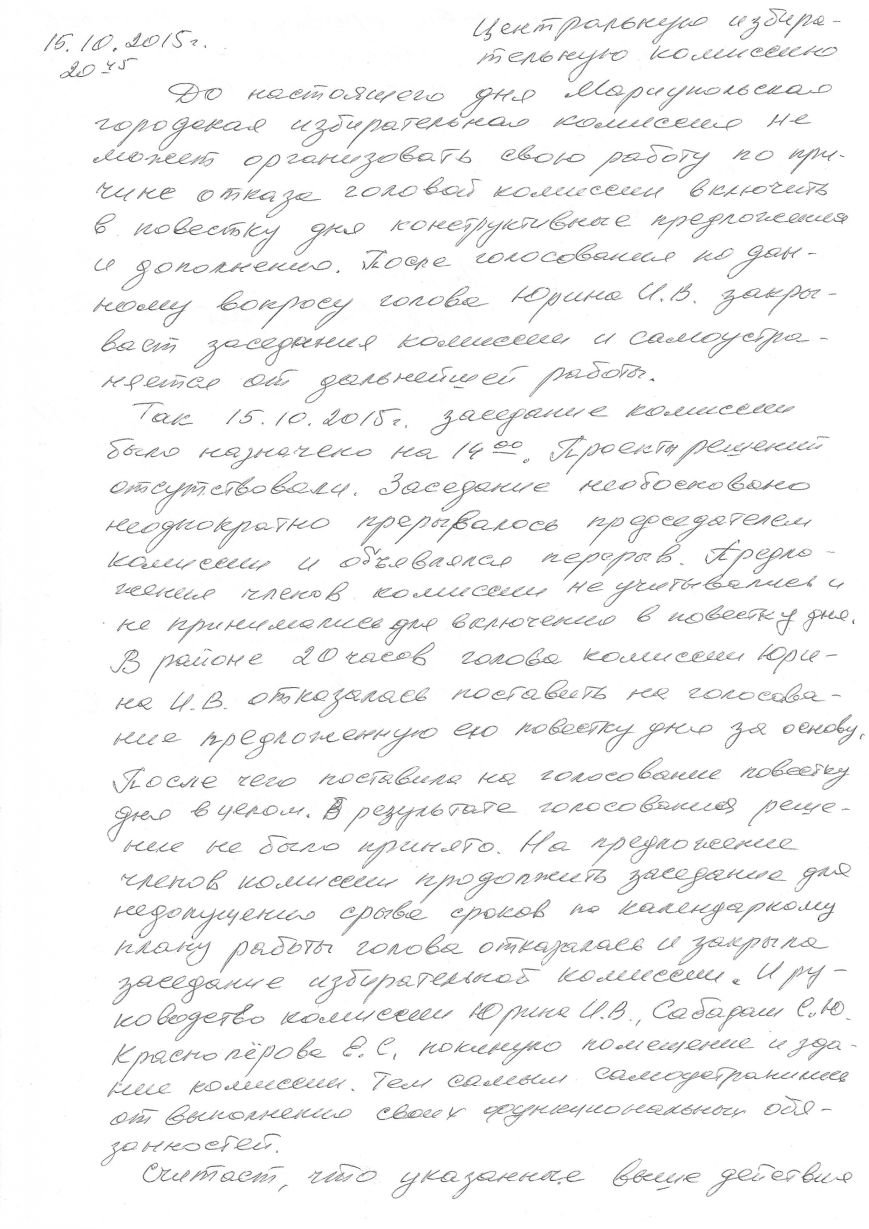 15.10.2015г.
20 45
Центральную избира-
тельную комиссию
До настоящего дня Мариупольская
городская избирательная комиссия не
может организовать свою работу по при-
чине отказа головой комиссии включить
в повестку дня конструктивные предложения
и дополнению. После голосования по дан-
ному вопросу голова Юрина И.В. закры-
вает заседания комиссии и самоустра-
няется от дальнейшей работы.
Так 15.10.2015г. заседание комиссии
было назначено на 14 00. Проекты решений
отсутствовали. Заседание необосковано
неоднократно прерывалось председателем
комиссии и объявлялся перерыв. Предло-
жения членов комиссии не учитывались и
не принимались для включения в повестку дня.
В районе 20 часов голова комиссии Юри-
на И.В. отказалась поставить на голосова-
ние предложенную ею повестку дня за основу.
После чего поставила на голосование повестку
дня в целом. В результате голосования реше-
ние не было принято. На предложение
членов комиссии продолжить заседание для
недопущению срыва сроков по календарному
плану работы голова отказалась и закрыла
заседание избирательной комиссии. И ру-
ководство комиссии Юрина И.В., Сабадаш С.Ю.
Краснопёрова Е.С. покинуло помещение и зда-
ние комиссии. Тем самым самоустранились
от выполнения своих функциональных обя-
занностей.
Считаст, что указанные выше действия